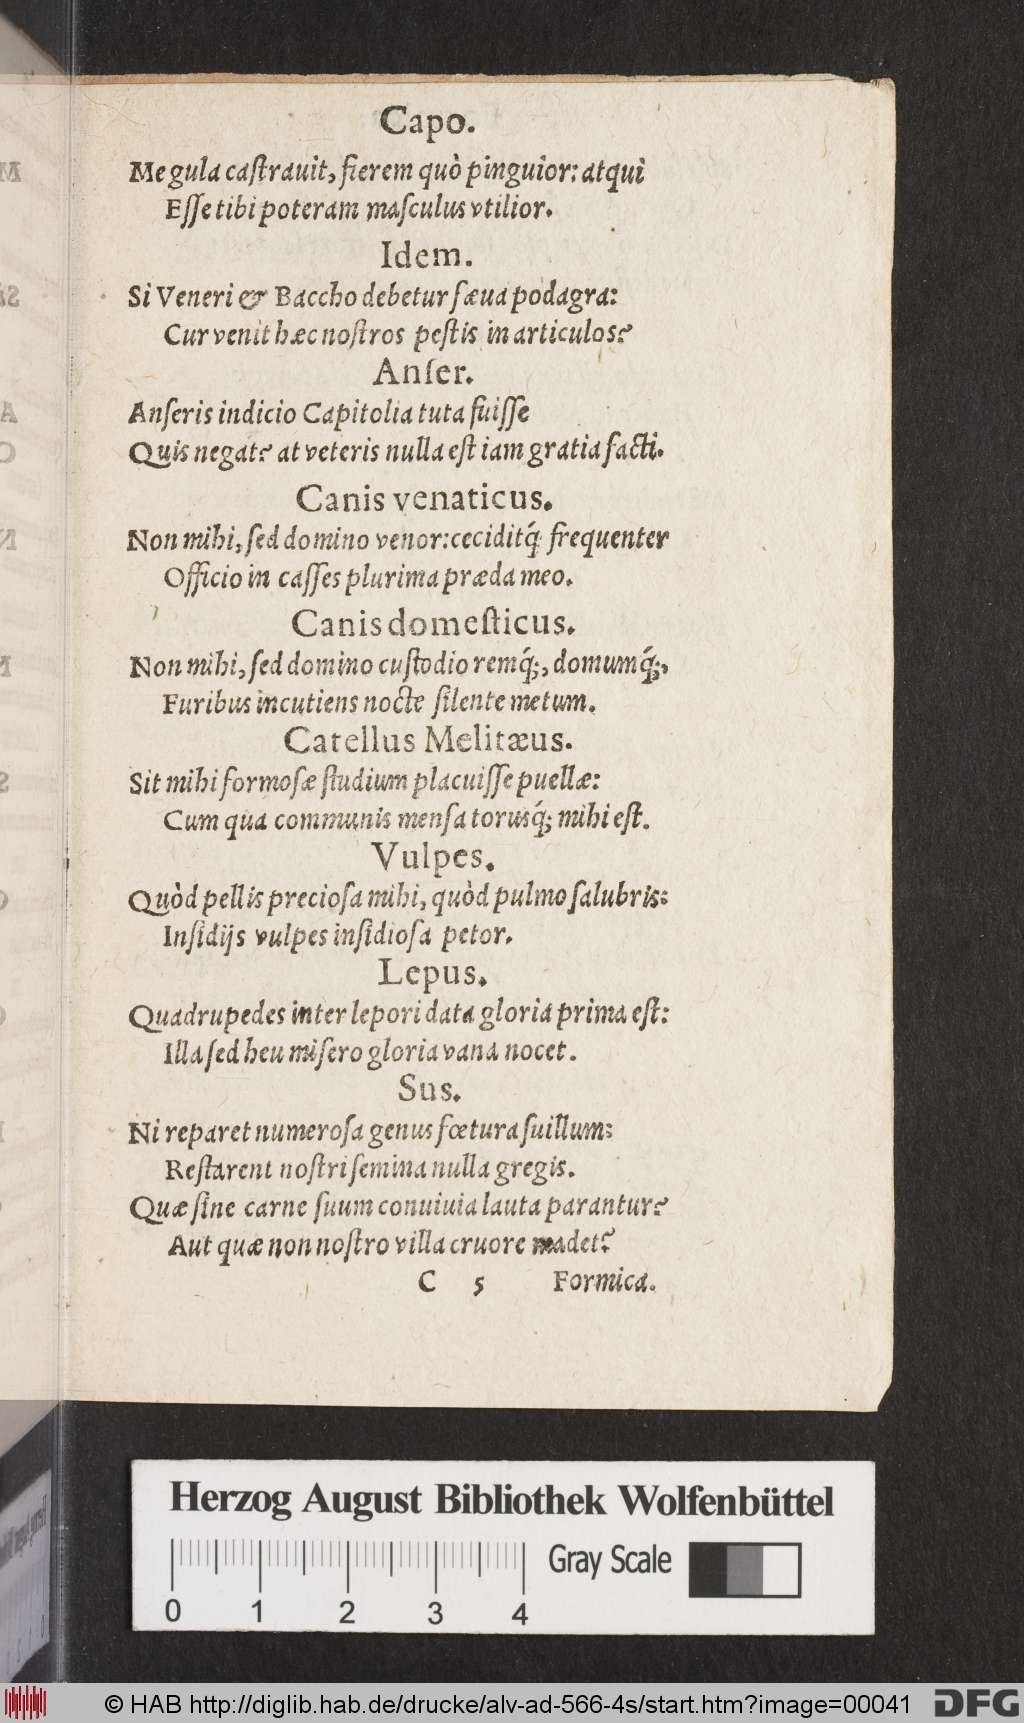 Capo.
Me gula caſtrauit, fierem quò pinguior: atqui
Eſſe tibi poteram maſculus vtilior.
Idem.
Si Veneri & Baccho debetur ſæua podagra:
Cur venit hæc noſtros peſtis in articulos?
Anſer.
Anſeris indicio Capitolia tuta fuiſſe
Quis negat? at veteris nulla eſt iam gratia facti.
Canis venaticus.
Non mihi, ſed domino venor: ceciditq́; frequenter
Officio in caſſes plurima præda meo.
Canis domeſticus.
Non mihi, ſed domino cuſtodio remq́;, domumq́;,
Furibus incutiens nocte ſilente metum.
Catellus Melitæus.
Sit mihi formoſæ ſtudium placuiſſe puellæ:
Cum qua communis menſa torusq́; mihi eſt.
Vulpes.
Quòd pellis precioſa mihi, quòd pulmo ſalubris:
Inſidijs vulpes inſidioſa petor.
Lepus.
Quadrupedes inter lepori data gloria prima eſt:
Illa ſed heu miſero gloria vana nocet.
Sus.
Ni reparet numeroſa genus fœtura ſuillum:
Reſtarent noſtri ſemina nulla gregis.
Quæ ſine carne ſuum conuiuia lauta parantur?
Aut quæ non noſtro villa cruore madet?
C 5 Formica.
Herzog August Bibliothek Wolfenbüttel
Gray Scale
0 1 2 3 4
© HAB http://diglib.hab.de/drucke/alv-ad-566-4s/start.htm?image=00041
DFG